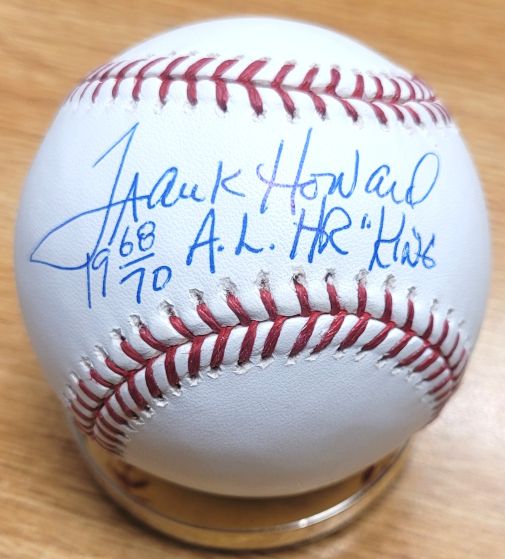 Frank Howard
19 68/70 A.L. HR "King"